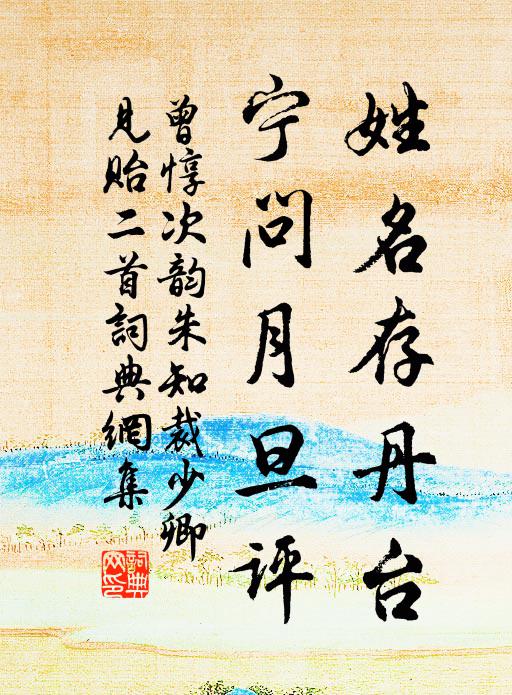 姓名存丹台
宁问月旦评
曾惇次韵朱知裁少卿
见贻二首词典網集
詞典網印